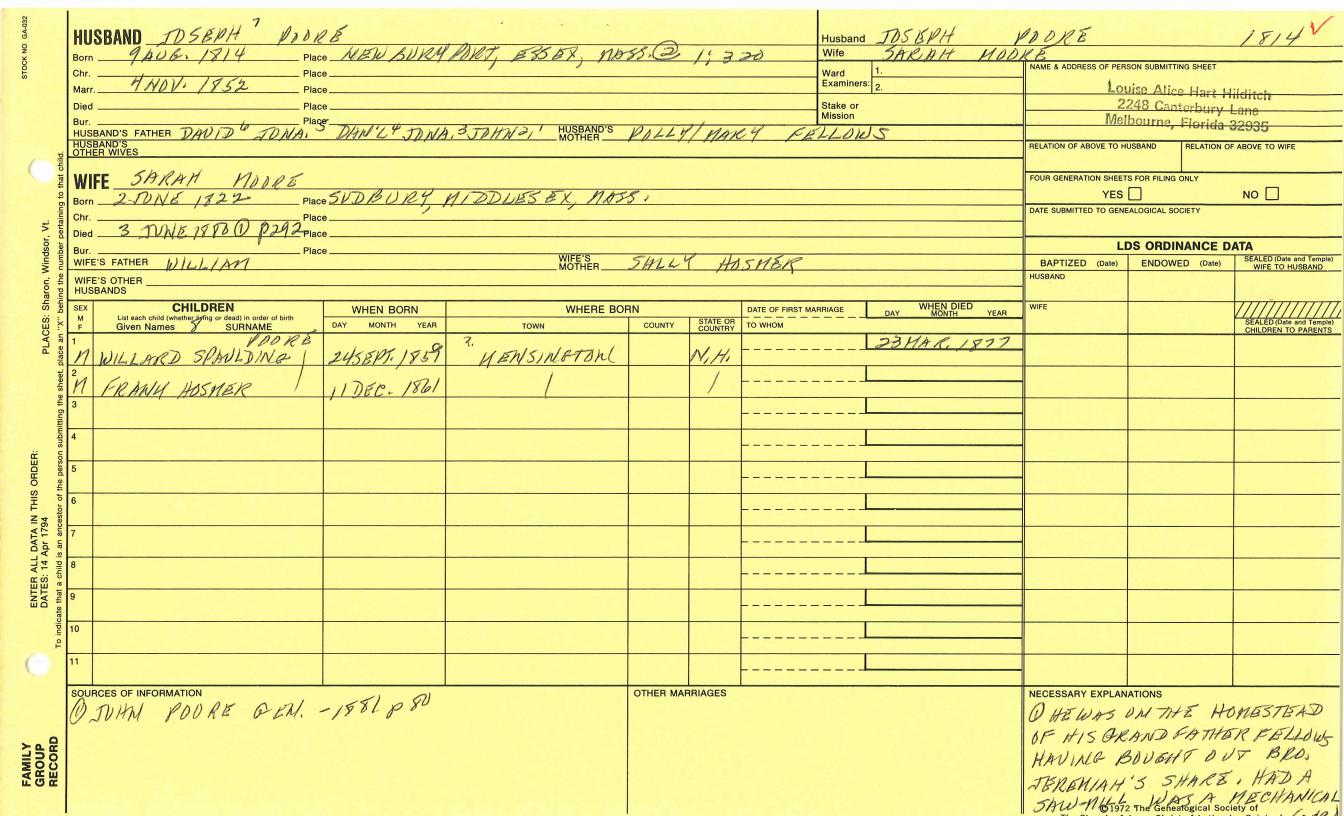 STOCK NO. GA-032
HUSBAND JOSEPH 7 POORE
Born 9 AUG. 1814 Place NEWBURYPORT, ESSEX, MASS. ② 1; 320
Chr. Place
Marr. 4 NOV. 1852 Place
Died Place
Bur. Place
HUSBAND'S FATHER DAVID 6 JONA. 5 DAN'L 4 JONA. 3 JOHN 2, 1 HUSBAND'S MOTHER POLLY/MARY FELLOWS
HUSBAND'S OTHER WIVES
Husband JOSEPH POORE 1814 ✓
Wife SARAH MOORE
Ward Examiners: 1.
2.
Stake or Mission
NAME & ADDRESS OF PERSON SUBMITTING SHEET
Louise Alice Hart Hilditch
2248 Canterbury Lane
Melbourne, Florida 32935
RELATION OF ABOVE TO HUSBAND RELATION OF ABOVE TO WIFE
FOUR GENERATION SHEETS FOR FILING ONLY
YES □ NO □
DATE SUBMITTED TO GENEALOGICAL SOCIETY
WIFE SARAH MOORE
Born 2 JUNE 1822 Place SUDBURY, MIDDLESEX, MASS.
Chr. Place
Died 3 JUNE 1880 ① p292 Place
Bur. Place
WIFE'S FATHER WILLIAM WIFE'S MOTHER SALLY HOSMER
WIFE'S OTHER HUSBANDS
LDS ORDINANCE DATA
BAPTIZED (Date) ENDOWED (Date) SEALED (Date and Temple) WIFE TO HUSBAND
HUSBAND
WIFE
SEALED (Date and Temple) CHILDREN TO PARENTS
SEX M F CHILDREN WHEN BORN WHERE BORN DATE OF FIRST MARRIAGE WHEN DIED
List each child (whether living or dead) in order of birth
Given Names 8 SURNAME DAY MONTH YEAR TOWN COUNTY STATE OR COUNTRY TO WHOM DAY MONTH YEAR
1 M WILLARD SPAULDING POORE 24 SEPT. 1859 ?. KENSINGTON N.H. 23 MAR. 1877
2 M FRANK HOSMER 11 DEC. 1861
3
4
5
6
7
8
9
10
11
SOURCES OF INFORMATION
① JOHN POORE GEN. - 1881 p 80
OTHER MARRIAGES
NECESSARY EXPLANATIONS
① HE WAS ON THE HOMESTEAD
OF HIS GRANDFATHER FELLOWS
HAVING BOUGHT OUT BRO.
JEREMIAH'S SHARE. HAD A
SAW-MILL WAS A MECHANICAL
©1972 The Genealogical Society of
PLACES: Sharon, Windsor, Vt.
ENTER ALL DATA IN THIS ORDER:
DATES: 14 Apr 1794
To indicate that a child is an ancestor of the person submitting the sheet, place an "X" behind the number pertaining to that child.
FAMILY GROUP RECORD